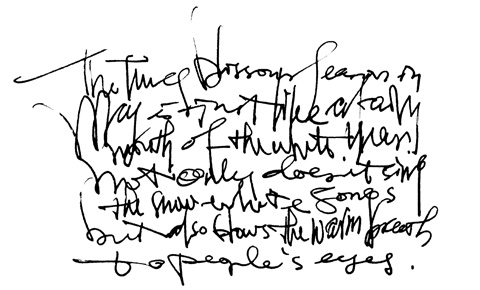 The Tung blossom season in
May is just like a fairy
month of the white
not only does it sing
the snow white songs
but also blows the warm breath
to people's eyes.